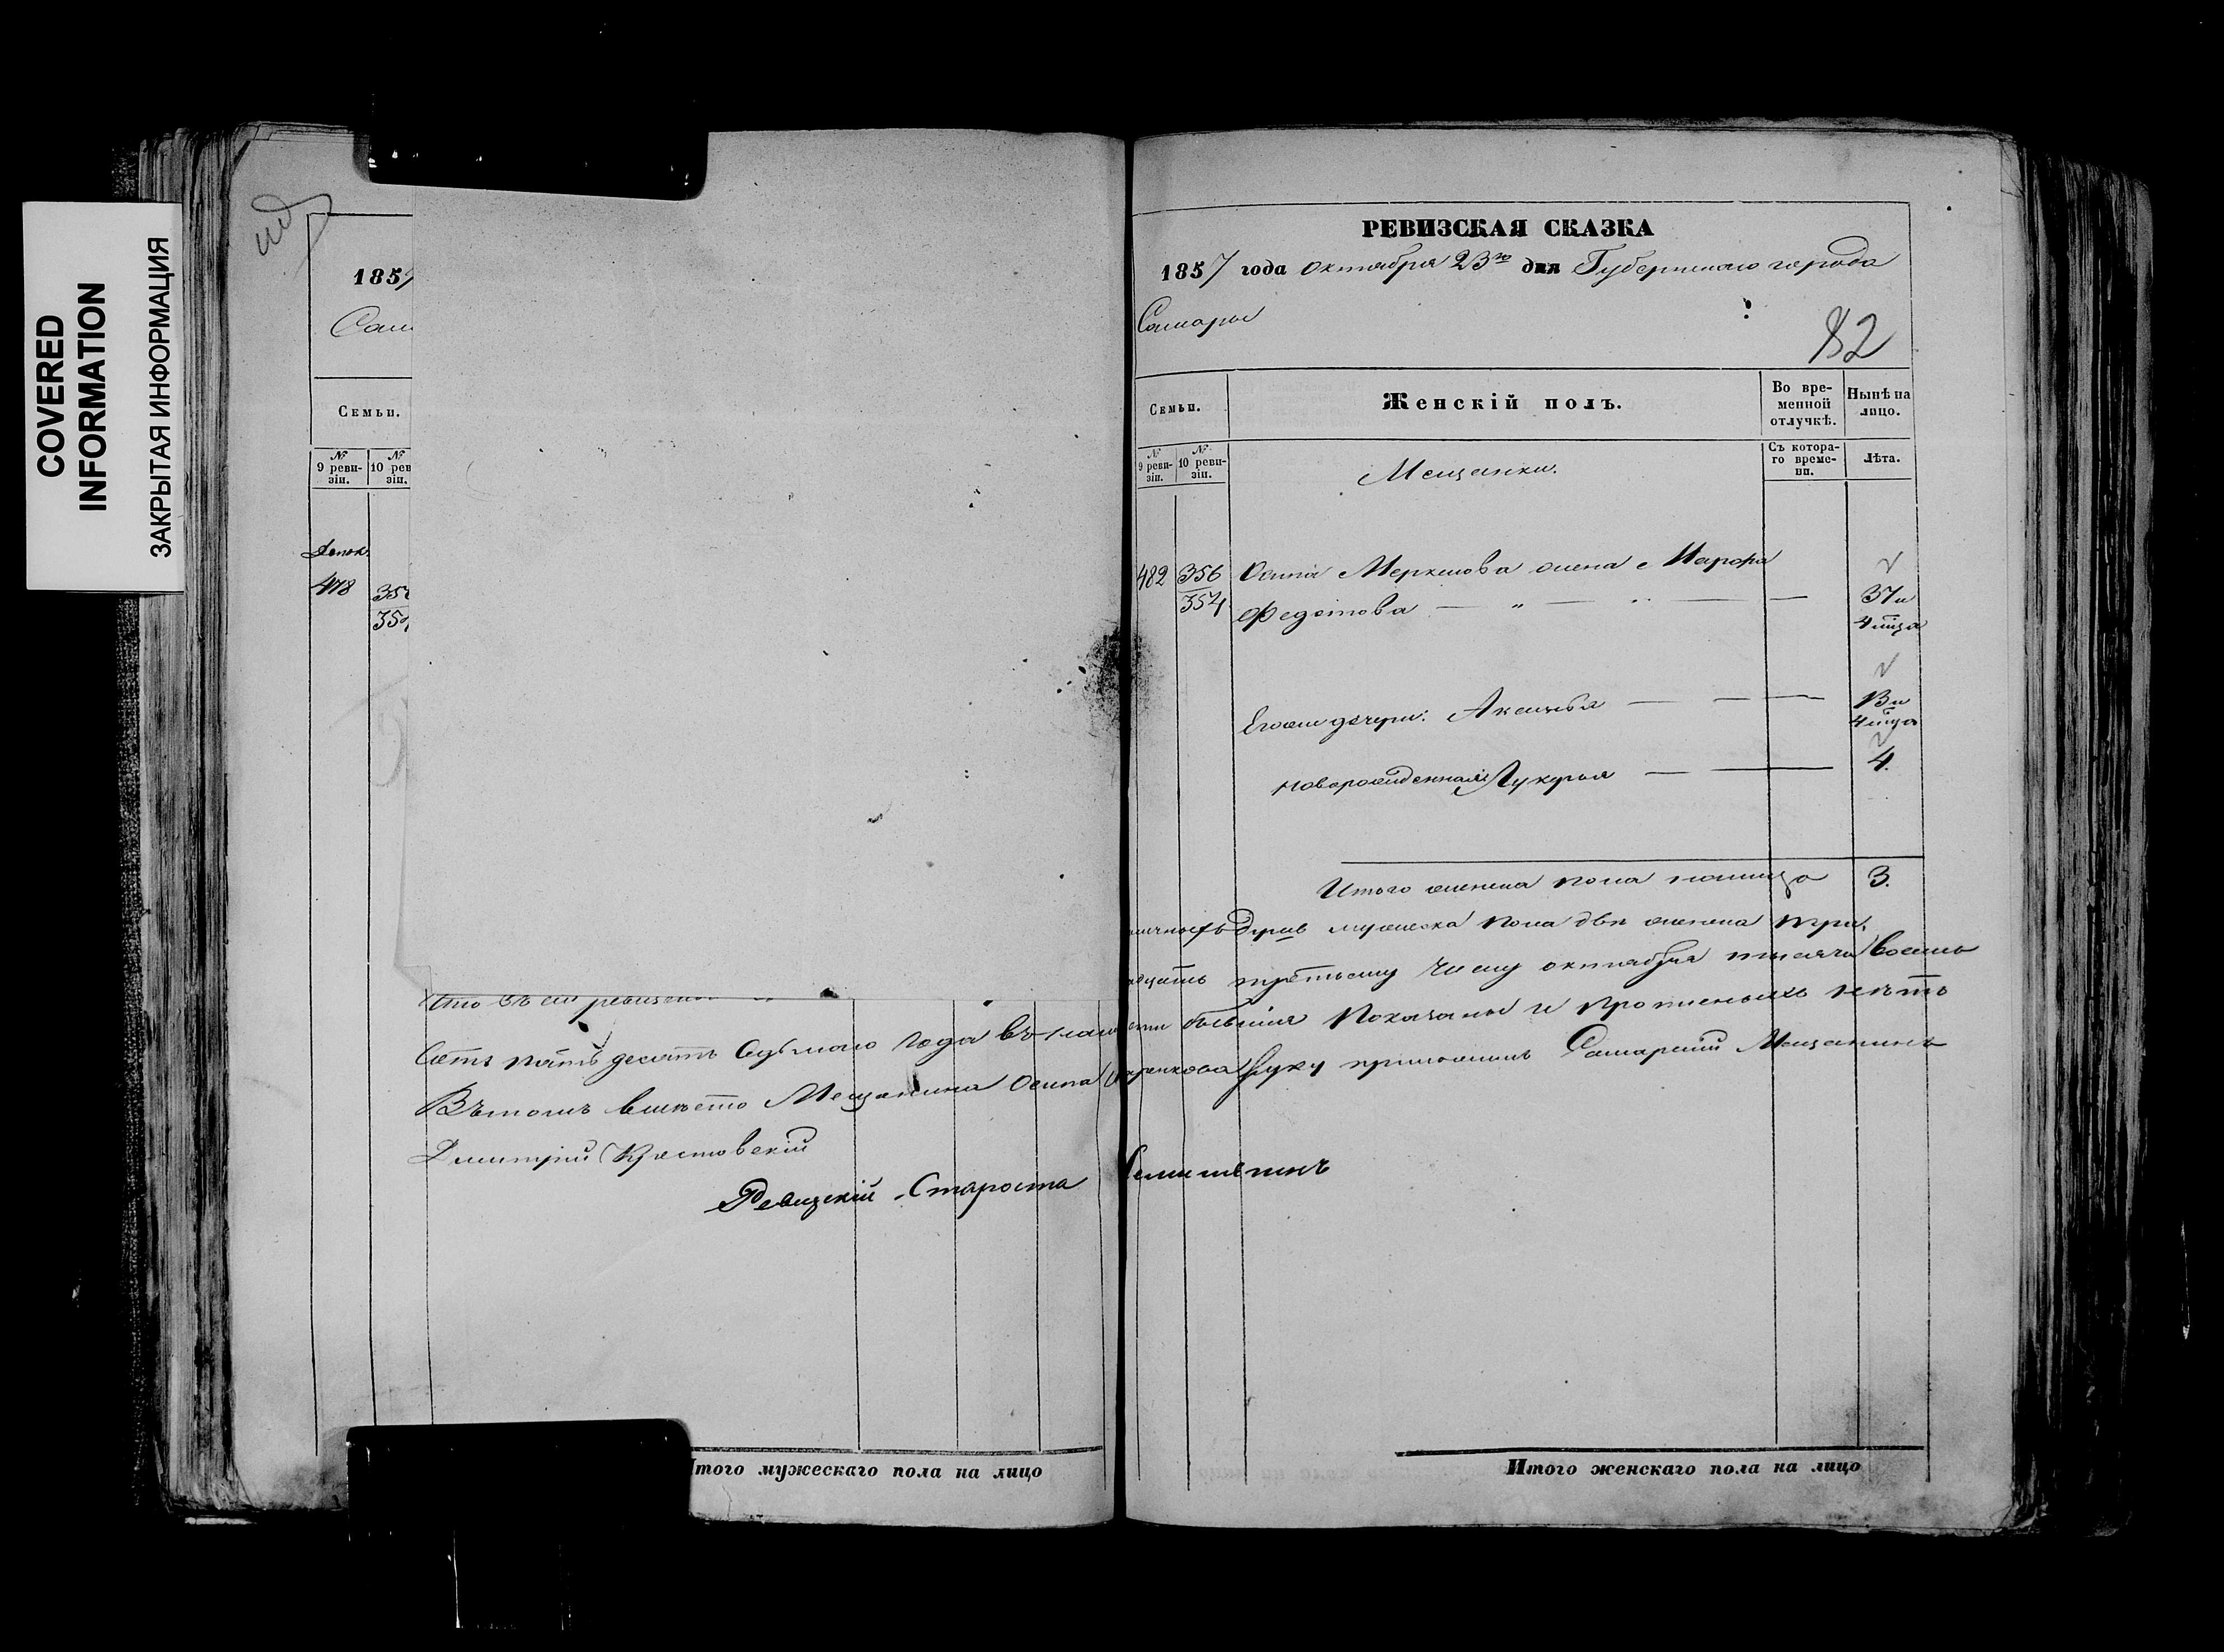 COVERED
INFORMATION
ЗАКРЫТАЯ ИНФОРМАЦИЯ
185
Сам
Семьи.
№
9 реви-
зіи.
№
10 рев
зіи.
478
Сотъ пятьдесятъ седьмаго года въ
Въ томъ вместо Мещанина Осипа
Дмитрій Крестовскій
Ревизскій Староста
того мужескаго пола на лицо
РЕВИЗСКАЯ СКАЗКА
1857 года октября 23го дня Губернскаго города
Самары
82
Семьи.
Женскій полъ.
Во вре-
менной
отлучкѣ.
Нынѣ на
лицо.
№
9 реви-
зіи.
№
10 реви-
зіи.
Мещанки.
Съ котора-
го време-
ни.
Лѣта.
482 356 Осипа жена Марфа
354 Федотова — „ — „ — — 37 и
4 мца
Его же дочери: Аксинья — — — 13 и
4 мца
новорожденная Лукерья — — 4.
Итого женска пола налицо 3.
душъ мужеска пола двѣ женска три.
третьему числу октября тысяча восемь
бывшія показаны и прописныхъ нѣтъ
руку приложилъ Самарскій Мещанинъ
Итого женскаго пола на лицо